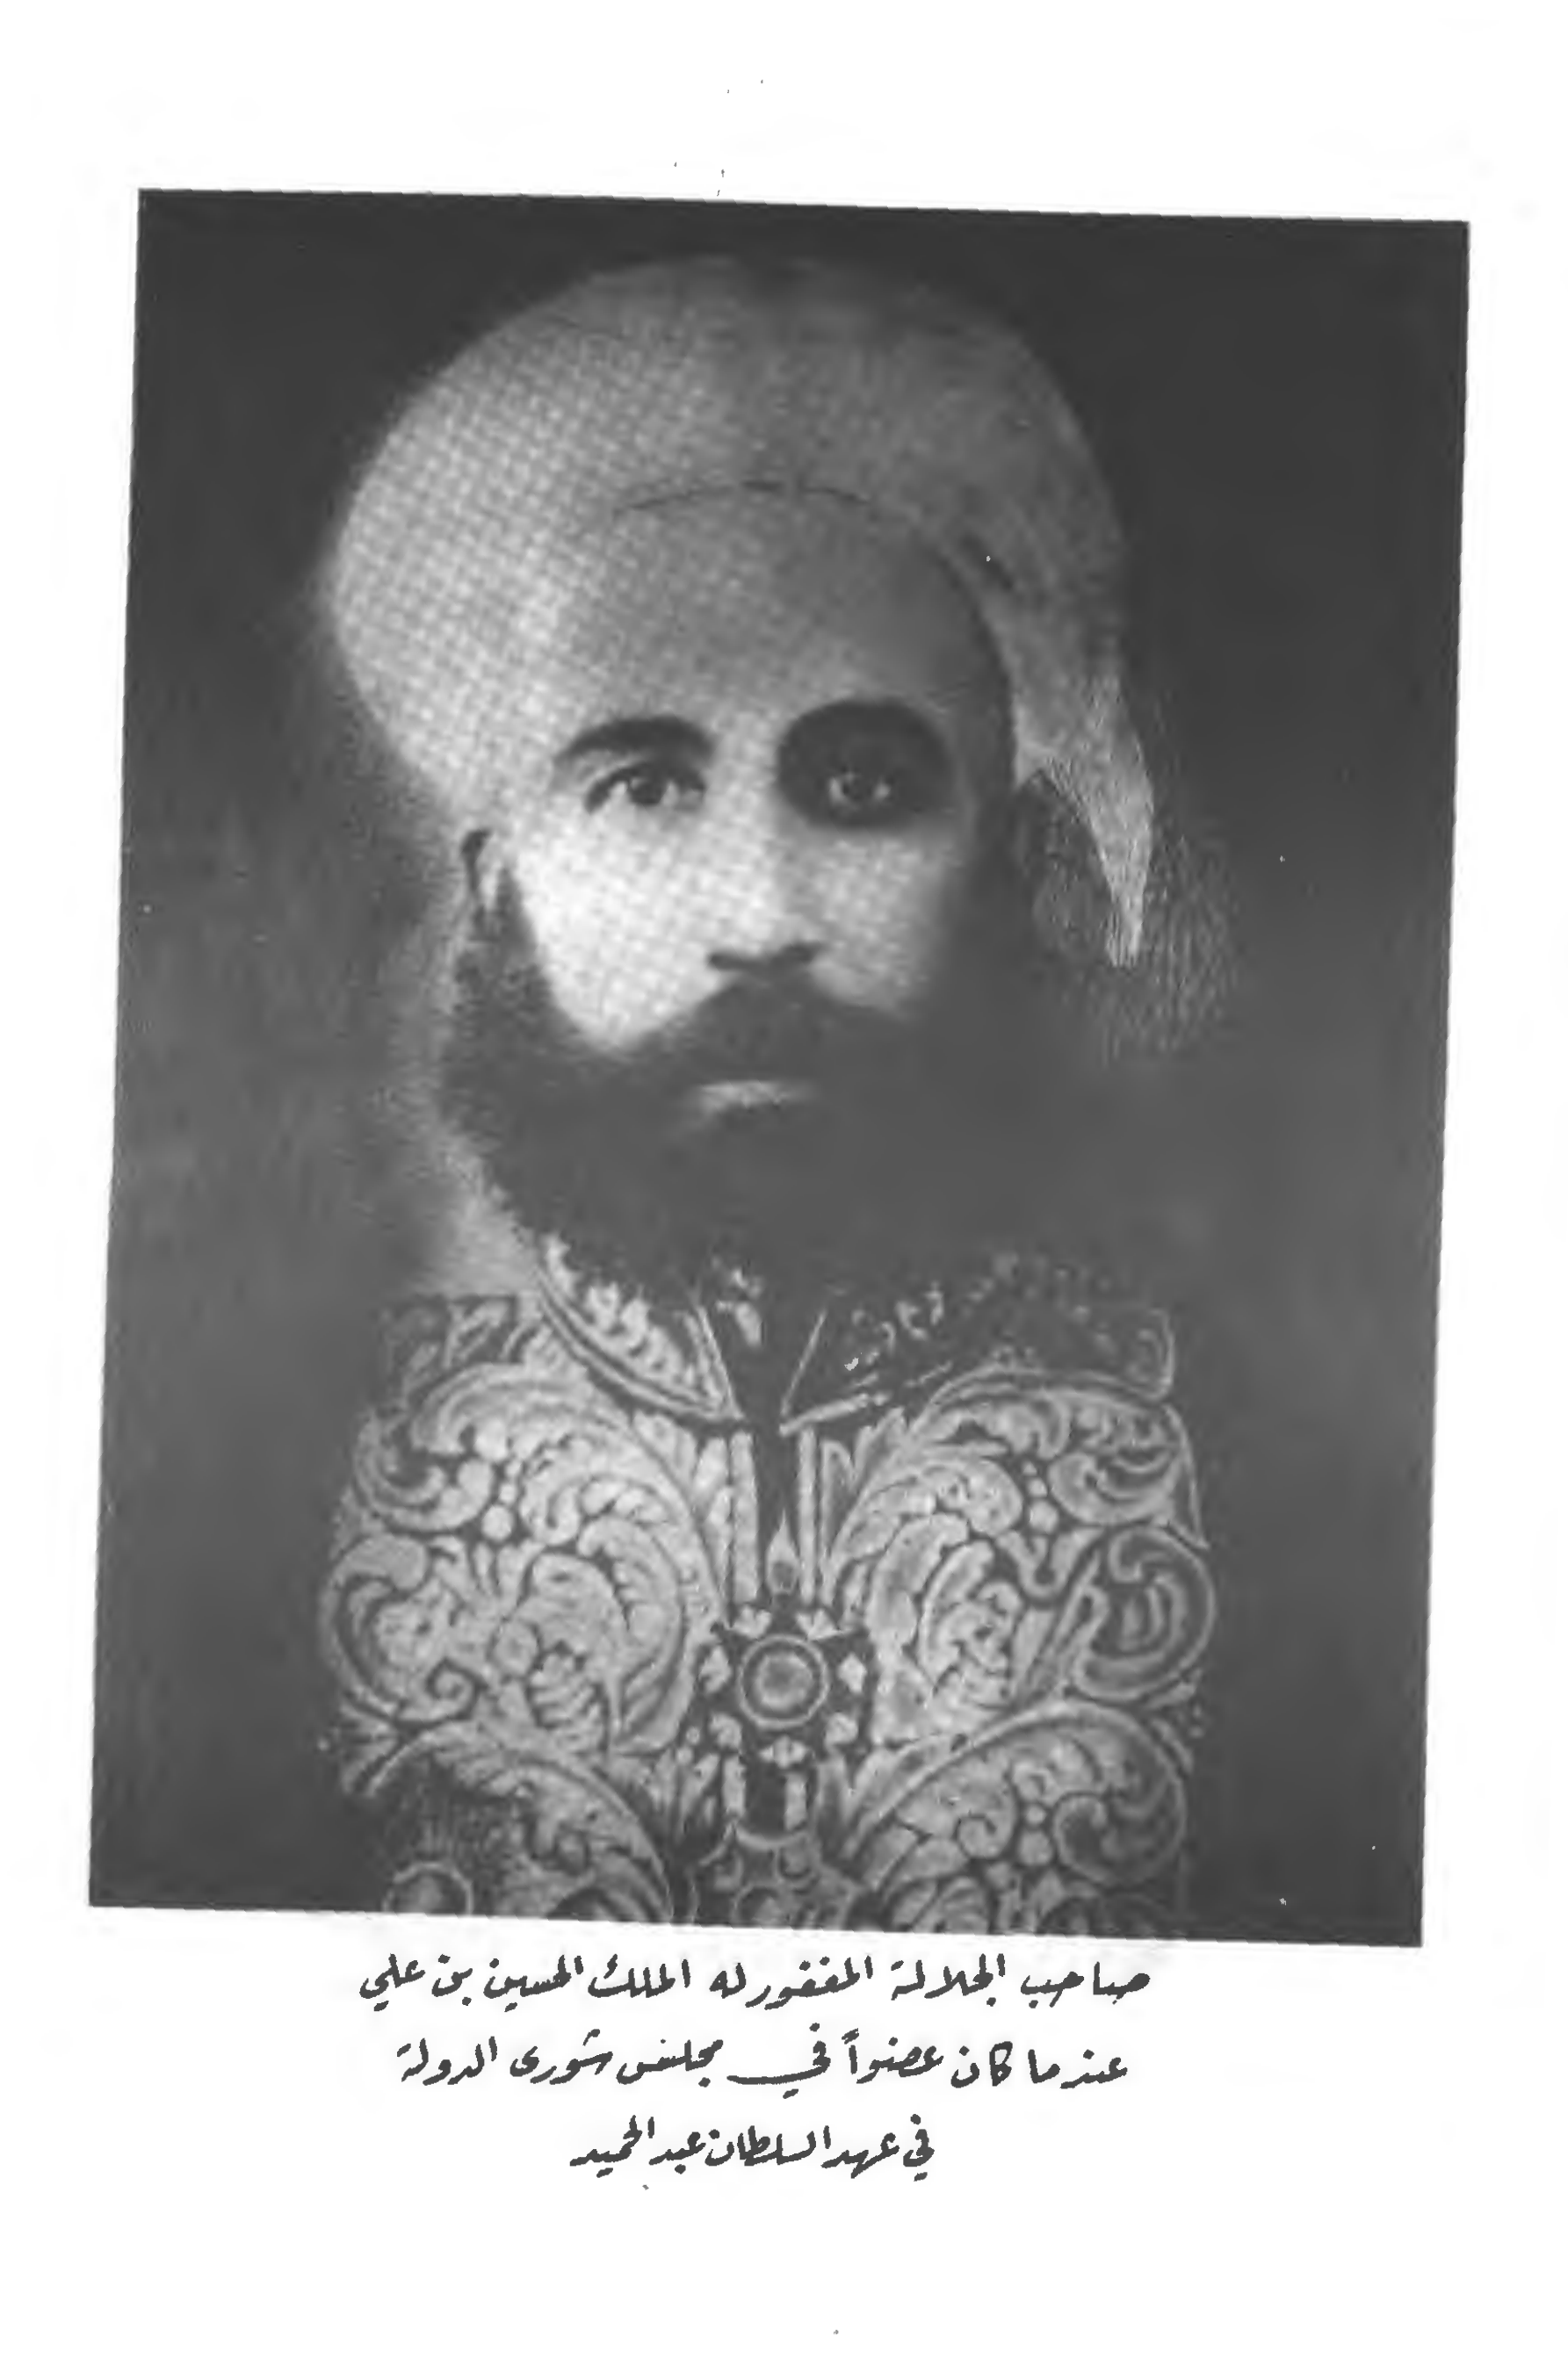 صاحب الجلالة المغفور له الملك الحسين بن علي
عندما كان عضواً في مجلس شورى الدولة
في عهد السلطان عبد الحميد